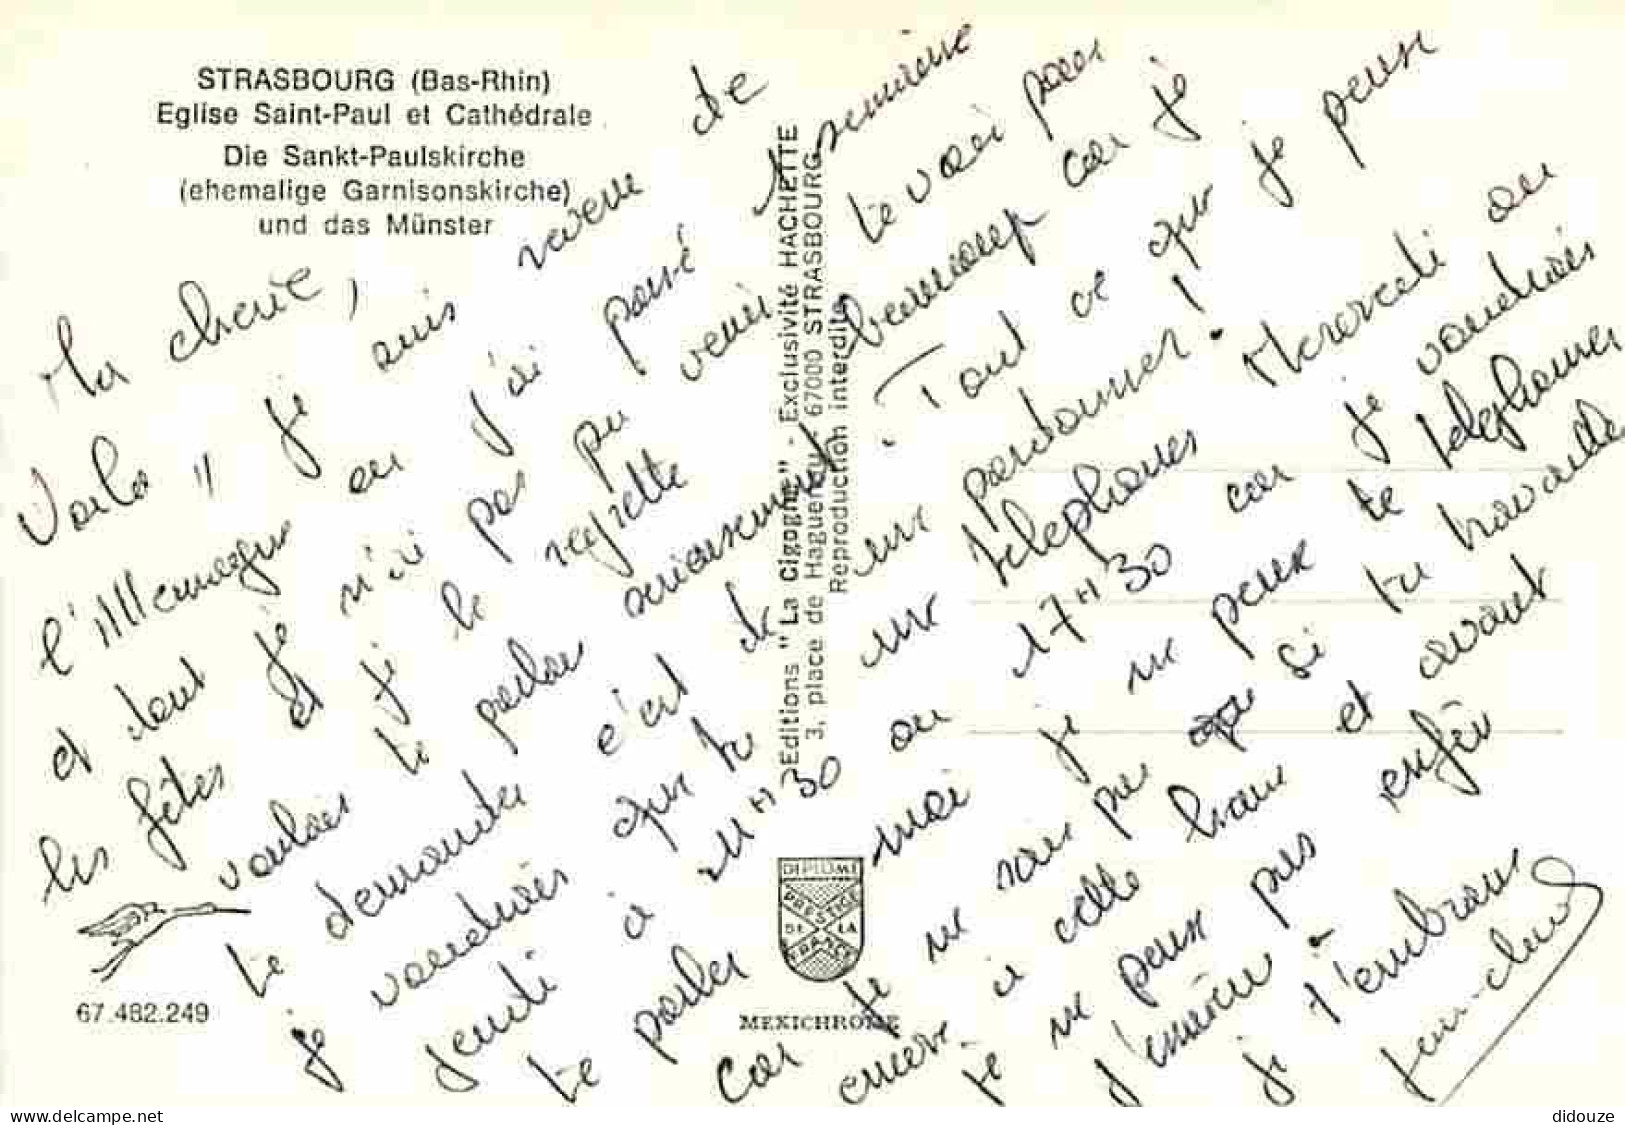 STRASBOURG (Bas-Rhin)
Eglise Saint-Paul et Cathédrale
Die Sankt-Paulskirche
(ehemalige Garnisonskirche)
und das Münster
Ma cherie,
Voila " je suis revenu de
l'Allemagne ou j'ai passé 1 semaine
et dont je n'ai pas pu venir te voir pour
les fêtes et je le regrette beaucoup car je
voulais te parler serieusement. Tout ce que je peux
te demander c'est de me pardonner !
je voudrais que tu me telephones Mercredi ou
jeudi à 11H30 ou 17H30 car je voudrais
te parler moi je ne peux te telephoner
car je ne sais pas si tu travaille
encore à cette et avant
je ne peux pas enfin
j'ennuie.
je t'embrasse
Jean-Claude
Editions "La Cigogne" - Exclusivité HACHETTE
3, place de Haguenau - 67000 STRASBOURG
Reproduction interdite
DIPLOME
PRESTIGE
DE LA
FRANCE
MEXICHROME
67.482.249
www.delcampe.net
didouze